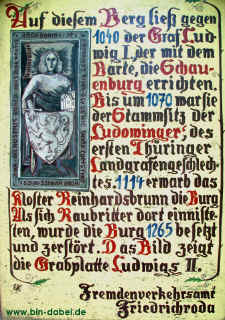 Auf diesem Berg ließ gegen
1040 der Graf Lud-
wig I., der mit dem
Barte, die Schau-
enburg errichten.
Bis um 1070 war sie
der Stammsitz der
Ludowinger, des
ersten Thüringer
Landgrafengeschlech-
tes. 1114 erwarb das
Kloster Reinhardsbrunn die Burg
Als sich Raubritter dort einniste-
ten, wurde die Burg 1265 besetzt
und zerstört. Das Bild zeigt
die Grabplatte Ludwigs II.
Fremdenverkehrsamt
Friedrichroda
www.bin-dabei.de